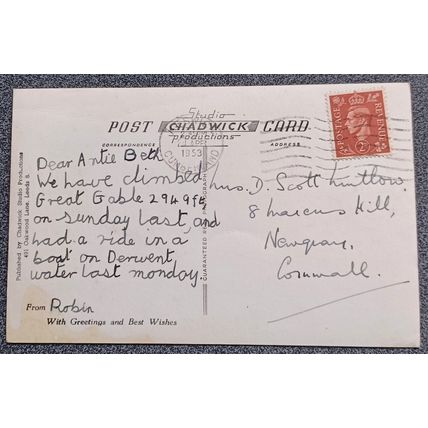 Studio
POST CHADWICK CARD
productions
CORRESPONDENCE
ADDRESS
1953
POSTAGE
REVENUE
2D
Dear Antie Beth
We have climbed
Great Gable 2949ft
on sunday last, and
had a ride in a
boat on Derwent
water last monday.
From Robin
With Greetings and Best Wishes
Published by Chadwick Studio Productions
411 Oakwood Lane, Leeds 8.
GUARANTEED REAL PHOTOGRAPH
Mrs. D. Scott
8 Marcus Hill,
Newquay,
Cornwall.